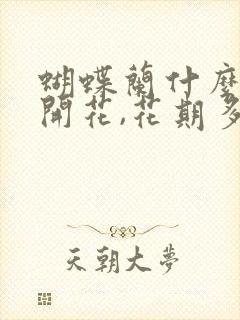 蝴蝶蘭什麼
開花,花期多
天朝大夢